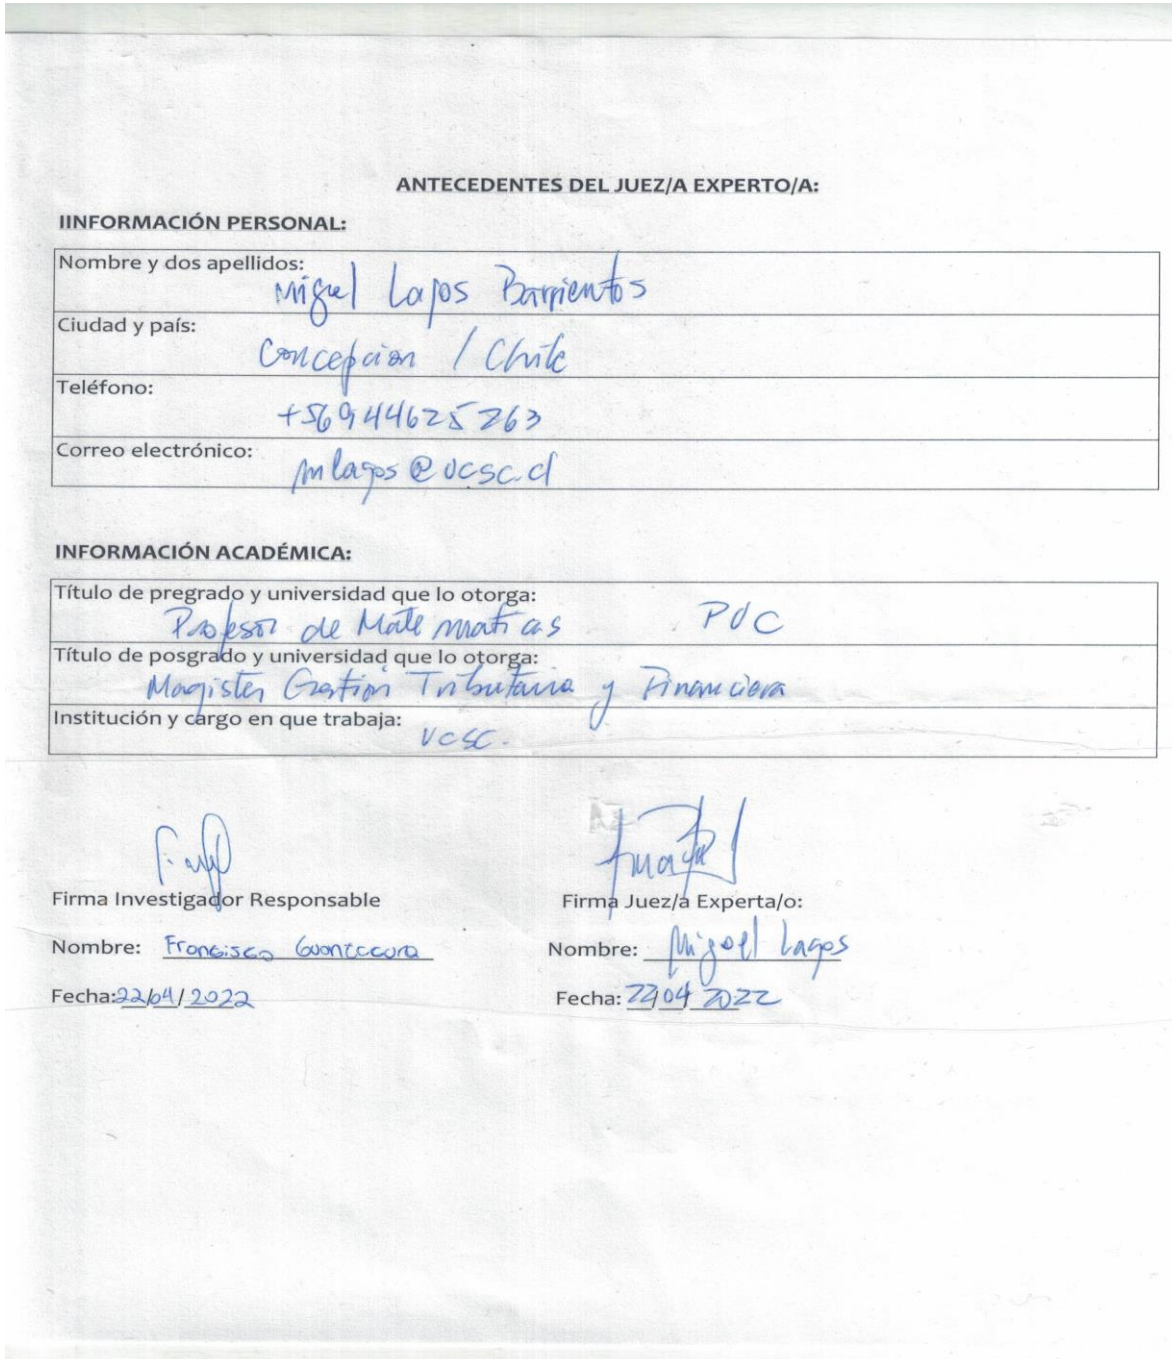 ANTECEDENTES DEL JUEZ/A EXPERTO/A:
IINFORMACIÓN PERSONAL:
Nombre y dos apellidos:
Miguel Lagos Barrientos
Ciudad y país:
Concepcion / Chile
Teléfono:
+56944625263
Correo electrónico:
mlagos@ucsc.cl
INFORMACIÓN ACADÉMICA:
Título de pregrado y universidad que lo otorga:
Profesor de Matematicas PUC
Título de posgrado y universidad que lo otorga:
Magister Gestion Tributaria y Financiera
Institución y cargo en que trabaja:
UCSC.
Firma Investigador Responsable Firma Juez/a Experta/o:
Nombre: Francisco Nombre: Miguel Lagos
Fecha: 22/04/2022 Fecha: 22/04 2022